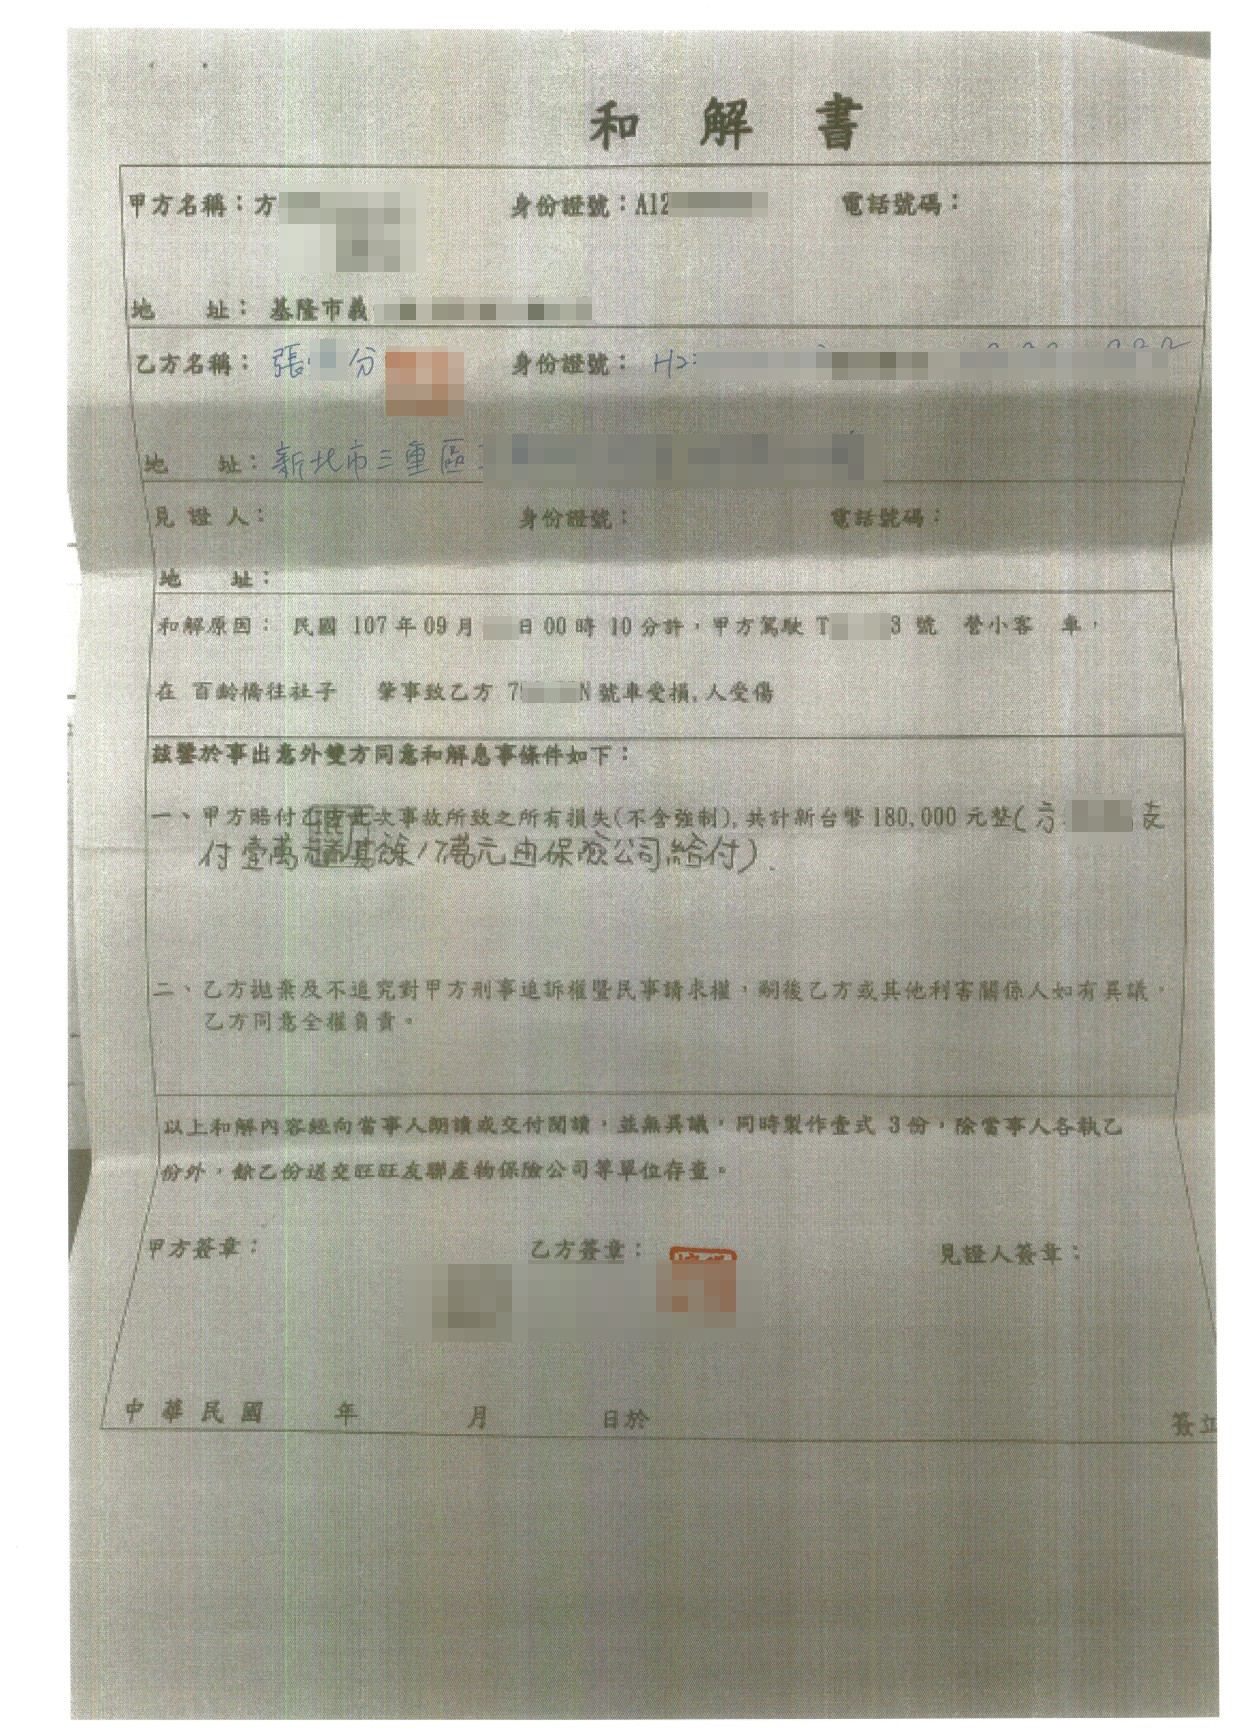 和解書
甲方名稱：方 身份證號：A12 電話號碼：
地 址： 基隆市義
乙方名稱： 張 分 身份證號： H2
地 址： 新北市三重區
見 證 人： 身份證號： 電話號碼：
地 址：
和解原因： 民國 107 年 09 月 日 00 時 10 分許，甲方駕駛 T 3 號 營小客 車，
在 百齡橋往社子 肇事致乙方 7 N 號車受損,人受傷
茲鑒於事出意外雙方同意和解息事條件如下：
一、甲方賠付乙方此次事故所致之所有損失(不含強制),共計新台幣 180,000 元整(方 支
付壹萬 其餘17萬元由保險公司給付).
二、乙方拋棄及不追究對甲方刑事追訴權暨民事請求權，嗣後乙方或其他利害關係人如有異議，
乙方同意全權負責。
以上和解內容經向當事人朗讀或交付閱讀，並無異議，同時製作壹式 3 份，除當事人各執乙
份外，餘乙份送交旺旺友聯產物保險公司等單位存查。
甲方簽章： 乙方簽章： 見證人簽章：
中 華 民 國 年 月 日於 簽立